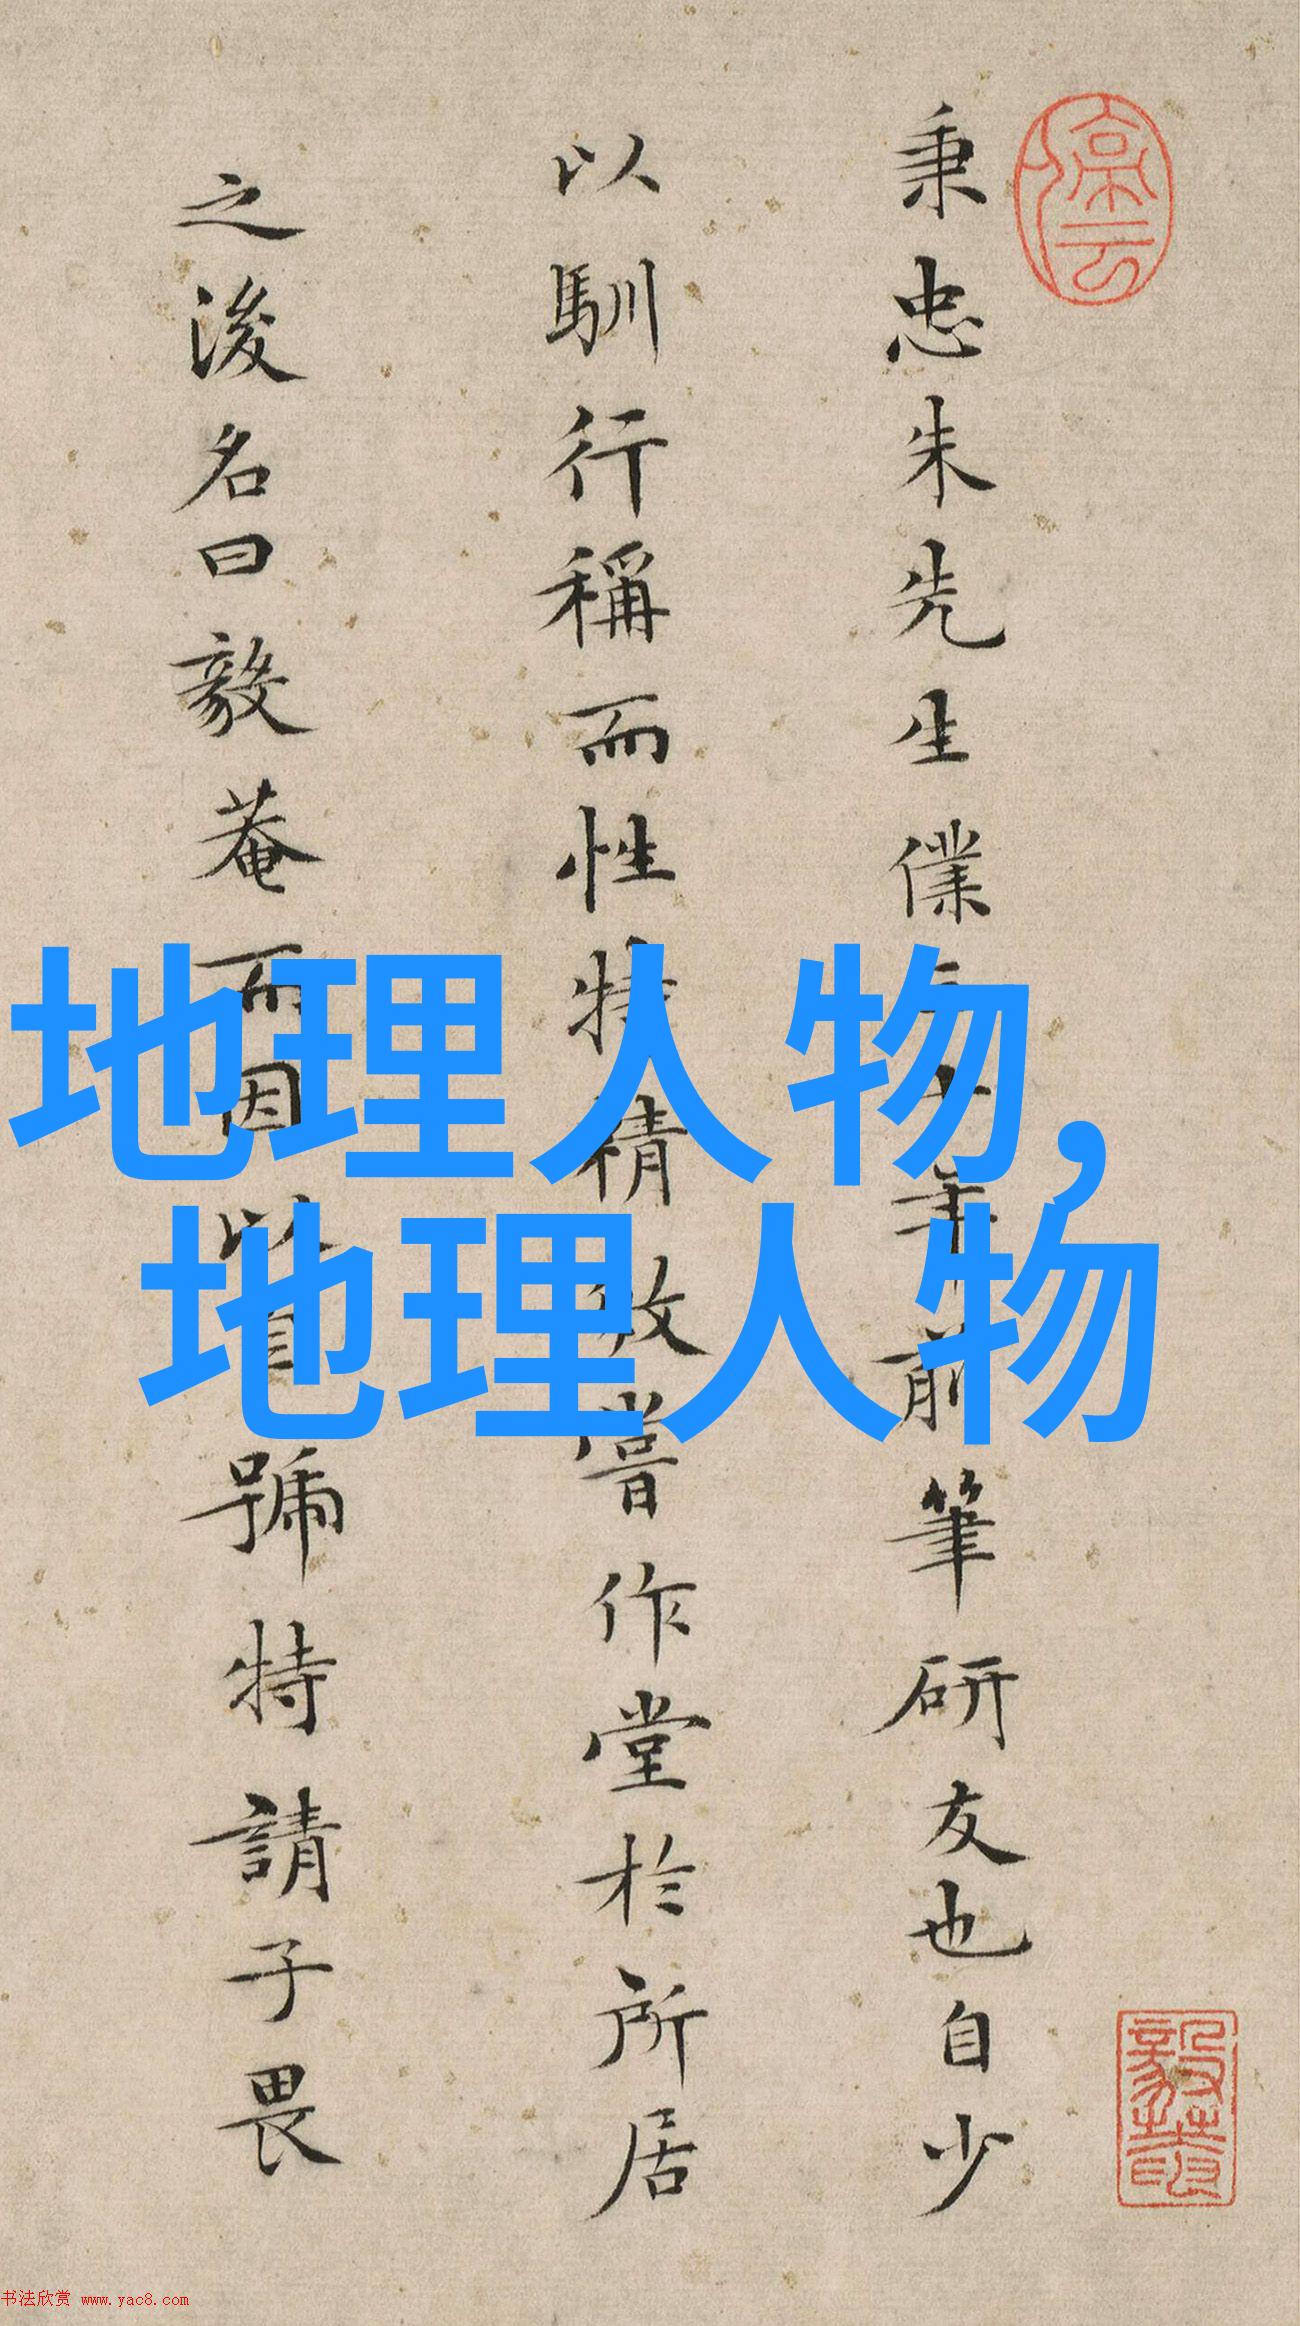 秉忠朱先生僕三十年前筆研友也自少
以馴行稱而性特精敏嘗作堂於所居
之後名曰毅菴而因以自號特請子畏
地理人物,
地理人物
书法欣赏 www.yac8.com